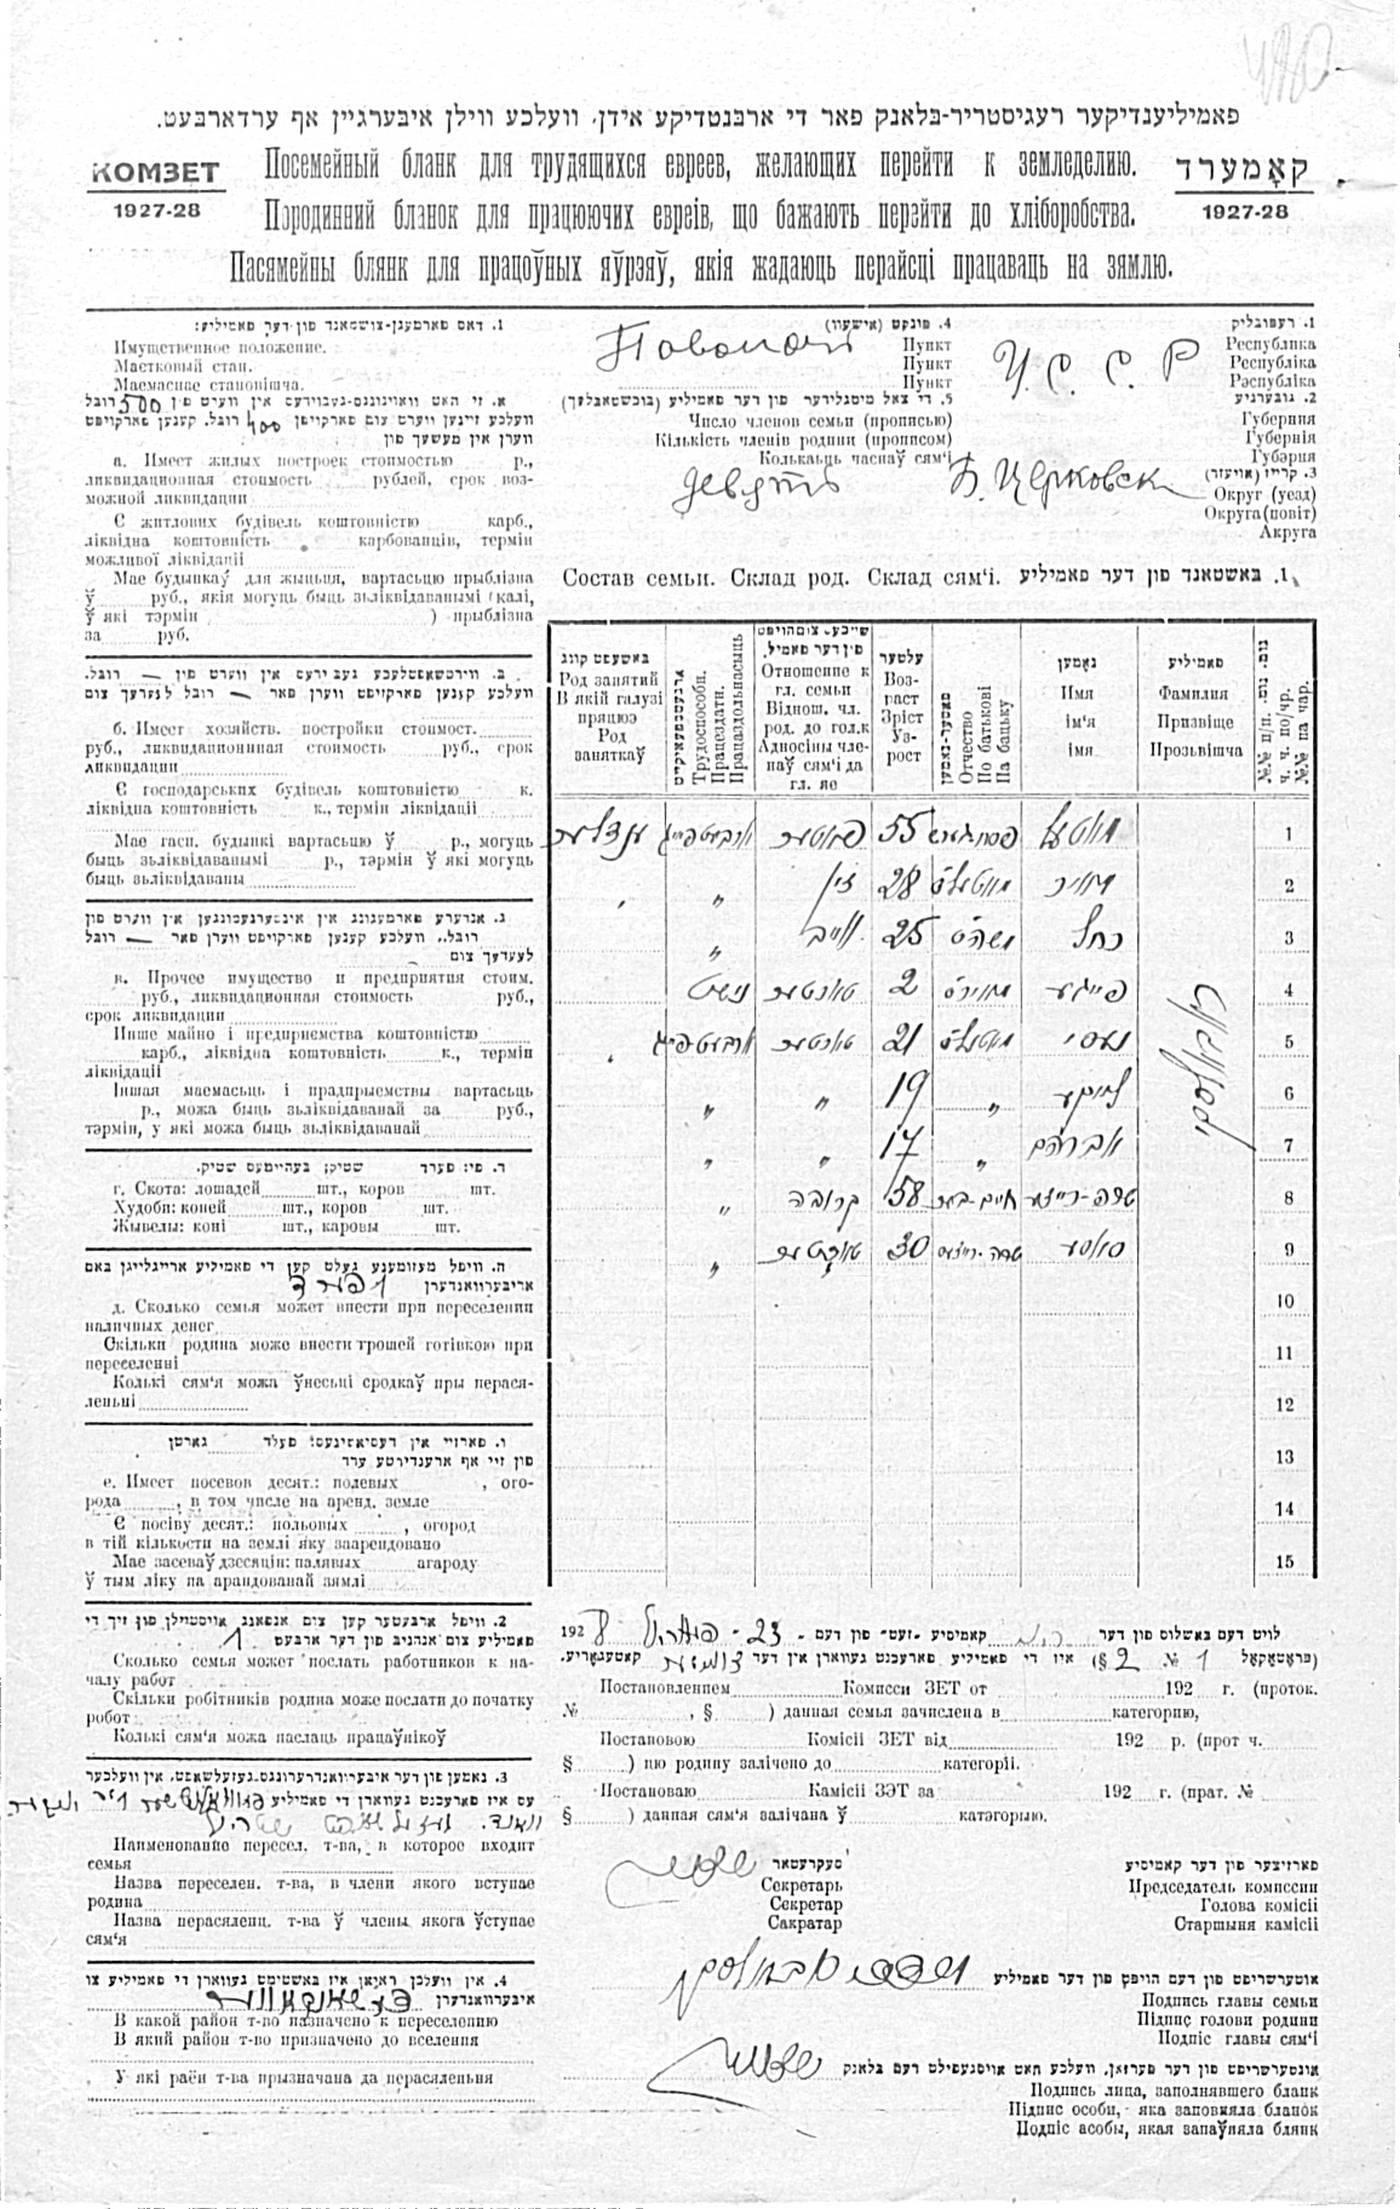 פאמיליענדיקער רעגיסטריר-בלאנק פאר די ארבנטדיקע אידן, וועלכע ווילן איבערגיין אף ערדארבעט.
КОМЗЕТ
1927-28
Посемейный бланк для трудящихся евреев, желающих перейти к земледелию.
Породинний бланок для працюючих евреїв, що бажають перэйти до хліборобства.
Пасямейны блянк для працоўных яўрэяў, якія жадаюць перайсці працаваць на зямлю.
קאָמערד
1927-28
1. רעפובליק
Республика
Республіка
Рэспубліка
У. С. С. Р
2. גובערניע
Губерния
Губернія
Губэрня
3. קרייז (אויעזד)
Округ (уезд)
Округа (повіт)
Акруга
Б. Церковск
4. פונקט (אישעוו)
Пункт
Пункт
Пункт
5. די צאל מיטגלידער פון דער פאמיליע (בוכשטאבלעך)
Число членов семьи (прописью)
Кількість членів родини (прописом)
Колькаьць часнаў сям'і
девять
1. דאס פארמעגן-צושטאנד פון דער פאמיליע:
Имущественное положение.
Маєтковый стан.
Маемаснае становішча.
א. זי האט וואוינונגס-געבוידעס אין ווערט פון 500 רובל
וועלכע זיינען ווערט צום פארקויפן 400 רובל. קענען פארקויפט
ווערן אין מעשעך פון
а. Имеет жилых построек стоимостью р.,
ликвидационная стоимость рублей, срок воз-
можной ликвидации
Є житлових будівель коштовністю карб.,
ліквідна коштовність карбованців, термін
можливої ліквідації
Мае будынкаў для жыцьця, вартасьцю прыблізна
ў руб., якія могуць быць зьліквідаванымі (калі,
ў які тэрмін ) прыблізна
за руб.
ב. ווירטשאפטלעכע געביידעס אין ווערט פון — רובל.
וועלכע קענען פארקויפט ווערן פאר — רובל לעערעך צום
б. Имеет хозяйств. постройки стоимост.
руб., ликвидационная стоимость руб., срок
ликвидации
Є господарських будівель коштовністю к.
ліквідна коштовність к., термін ліквідації
Мае гасп. будынкі вартасьцю ў р., могуць
быць зьліквідаванымі р., тэрмін ў які могуць
быць зьліквідаваны
ג. אנדערע פארמעגונג אין אינטערנעמונגען אין ווערט פון
רובל., וועלכע קענען פארקויפט ווערן פאר — רובל
לעערעך צום
в. Прочее имущество и предприятия стоим.
руб., ликвидационная стоимость руб.,
срок ликвидации
Инше майно і предприємства коштовністю
карб., ліквідна коштовність к., термін
ліквідації
Іншая маемасьць і прадпрыемствы вартасьць
р., можа быць зьліквідаванай за руб.,
тэрмін, у які можа быць зьліквідаванай
ד. פי: פערד שטיק; בעהיימעס שטיק.
г. Скота: лошадей шт., коров шт.
Худоби: коней шт., коров шт.
Жывелы: коні шт., каровы шт.
ה. וויפל מעזומענע געלט קען די פאמיליע אריינלייגן באם
אריבערוואנדערן
д. Сколько семья может внести при переселении
наличных денег
Скільки родина може внести грошей готівкою при
переселенні
Колькі сям'я можа ўнесьці сродкаў пры перася-
леньні
ו. פארזיי אין דעסיאטינעס: פעלד גארטן
פון זיי אף ארענדירטע ערד
е. Имеет посевов десят.: полевых , ого-
рода , в том числе на аренд. земле
Є посіву десят.: польовых , огород
в тій кількости на землі яку заарендовано
Мае засеваў дзесяцін: палявых агароду
ў тым ліку на арандованай зямлі
2. וויפל ארבעטער קען צום אנפאנג אויסטיילן פון זיך די
פאמיליע צום אנהניב פון דער ארבעט 1
Сколько семья может послать работников к на-
чалу работ
Скільки робітників родина може послати до початку
робот
Колькі сям'я можа паслаць працаўнікоў
3. נאמען פון דער איבערוואנדערונגס-געזעלשאפט, אין וועלכער
עס איז פארכנט געווארן די פאמיליע
Наименование пересел. т-ва, в которое входит
семья
Назва переселен. т-ва, в члени якого вступае
родина
Назва перасяленц. т-ва ў члены якога ўступае
сям'я
4. אין וועלכן ראיאן איז באשטימט געווארן די פאמיליע צו
איבערוואנדערן
В какой район т-во назначено к переселению
В який район т-во призначено до вселення
У які раён т-ва прызначана да перасяленьня
Состав семьи. Склад род. Склад сям'і. 1. באשטאנד פון דער פאמיליע
באשעפטיקונג
Род занятий
В якій галузі
працює
Род
заняткаў
ארבעטספעאיקייט
Трудоспособн.
Працездатн.
Працаздольнасьць
שייכעס צום הויפט
פון דער פאמיל.
Отношение к
гл. семьи
Віднош. чл.
род. до гол.к
Адносіны чле-
наў сям'і да
гл. яе
עלטער
Воз-
раст
Зріст
Уз-
рост
פאטער-נאמען
Отчество
По батькові
Па бацьку
נאָמען
Имя
ім'я
імя
פאמיליע
Фамилия
Призвіще
Прозьвішча
№№ п/п.
ч. ч. по/чр.
№№ па чар.
1 מאטעל 55 פאטער
2 מאיר מאטעלס 28 זין „
3 רחל משהס 25 ווייב „
4 פייגע מאירס 2 טאכטער נישט
5 נעסי מאטעלס 21 טאכטער
6 „ 19 „ „
7 אברהם „ 17 „ „
8 חיים-בער 58 קרובה „
9 סאסע 30 טאכטער „
10
11
12
13
14
15
לויט דעם באשלוס פון דער קאמיסיע „זעט“ פון דעם 23 פעווראל 1928
(פראָטאָקאָל № 1 § 2) איז די פאמיליע פארכנט געווארן אין דער צווייטער קאטעגאָריע.
Постановлением Комисси ЗЕТ от 192 г. (проток.
№ , § ) данная семья зачислена в категорию,
Постановою Комісії ЗЕТ від 192 р. (прот ч.
§ ) цю родину залічено до категорії.
Постановаю Камісіі ЗЭТ за 192 г. (прат. №
§ ) данная сям'я залічана ў катэгорыю.
סעקרעטאר
Секретарь
Секретар
Сакратар
פארזיצער פון דער קאמיסיע
Председатель комиссии
Голова комісії
Старшыня камісіі
אונטערשריפט פון דעם הויפט פון דער פאמיליע
Подпись главы семьи
Підпис голови родини
Подпіс главы сям'і
אונטערשריפט פון דער פערזאן, וועלכע האט אויסגעפילט דעם בלאנק
Подпись лица, заполнявшего бланк
Підпис особи, яка заповняла бланок
Подпіс асобы, якая запаўняла блянк